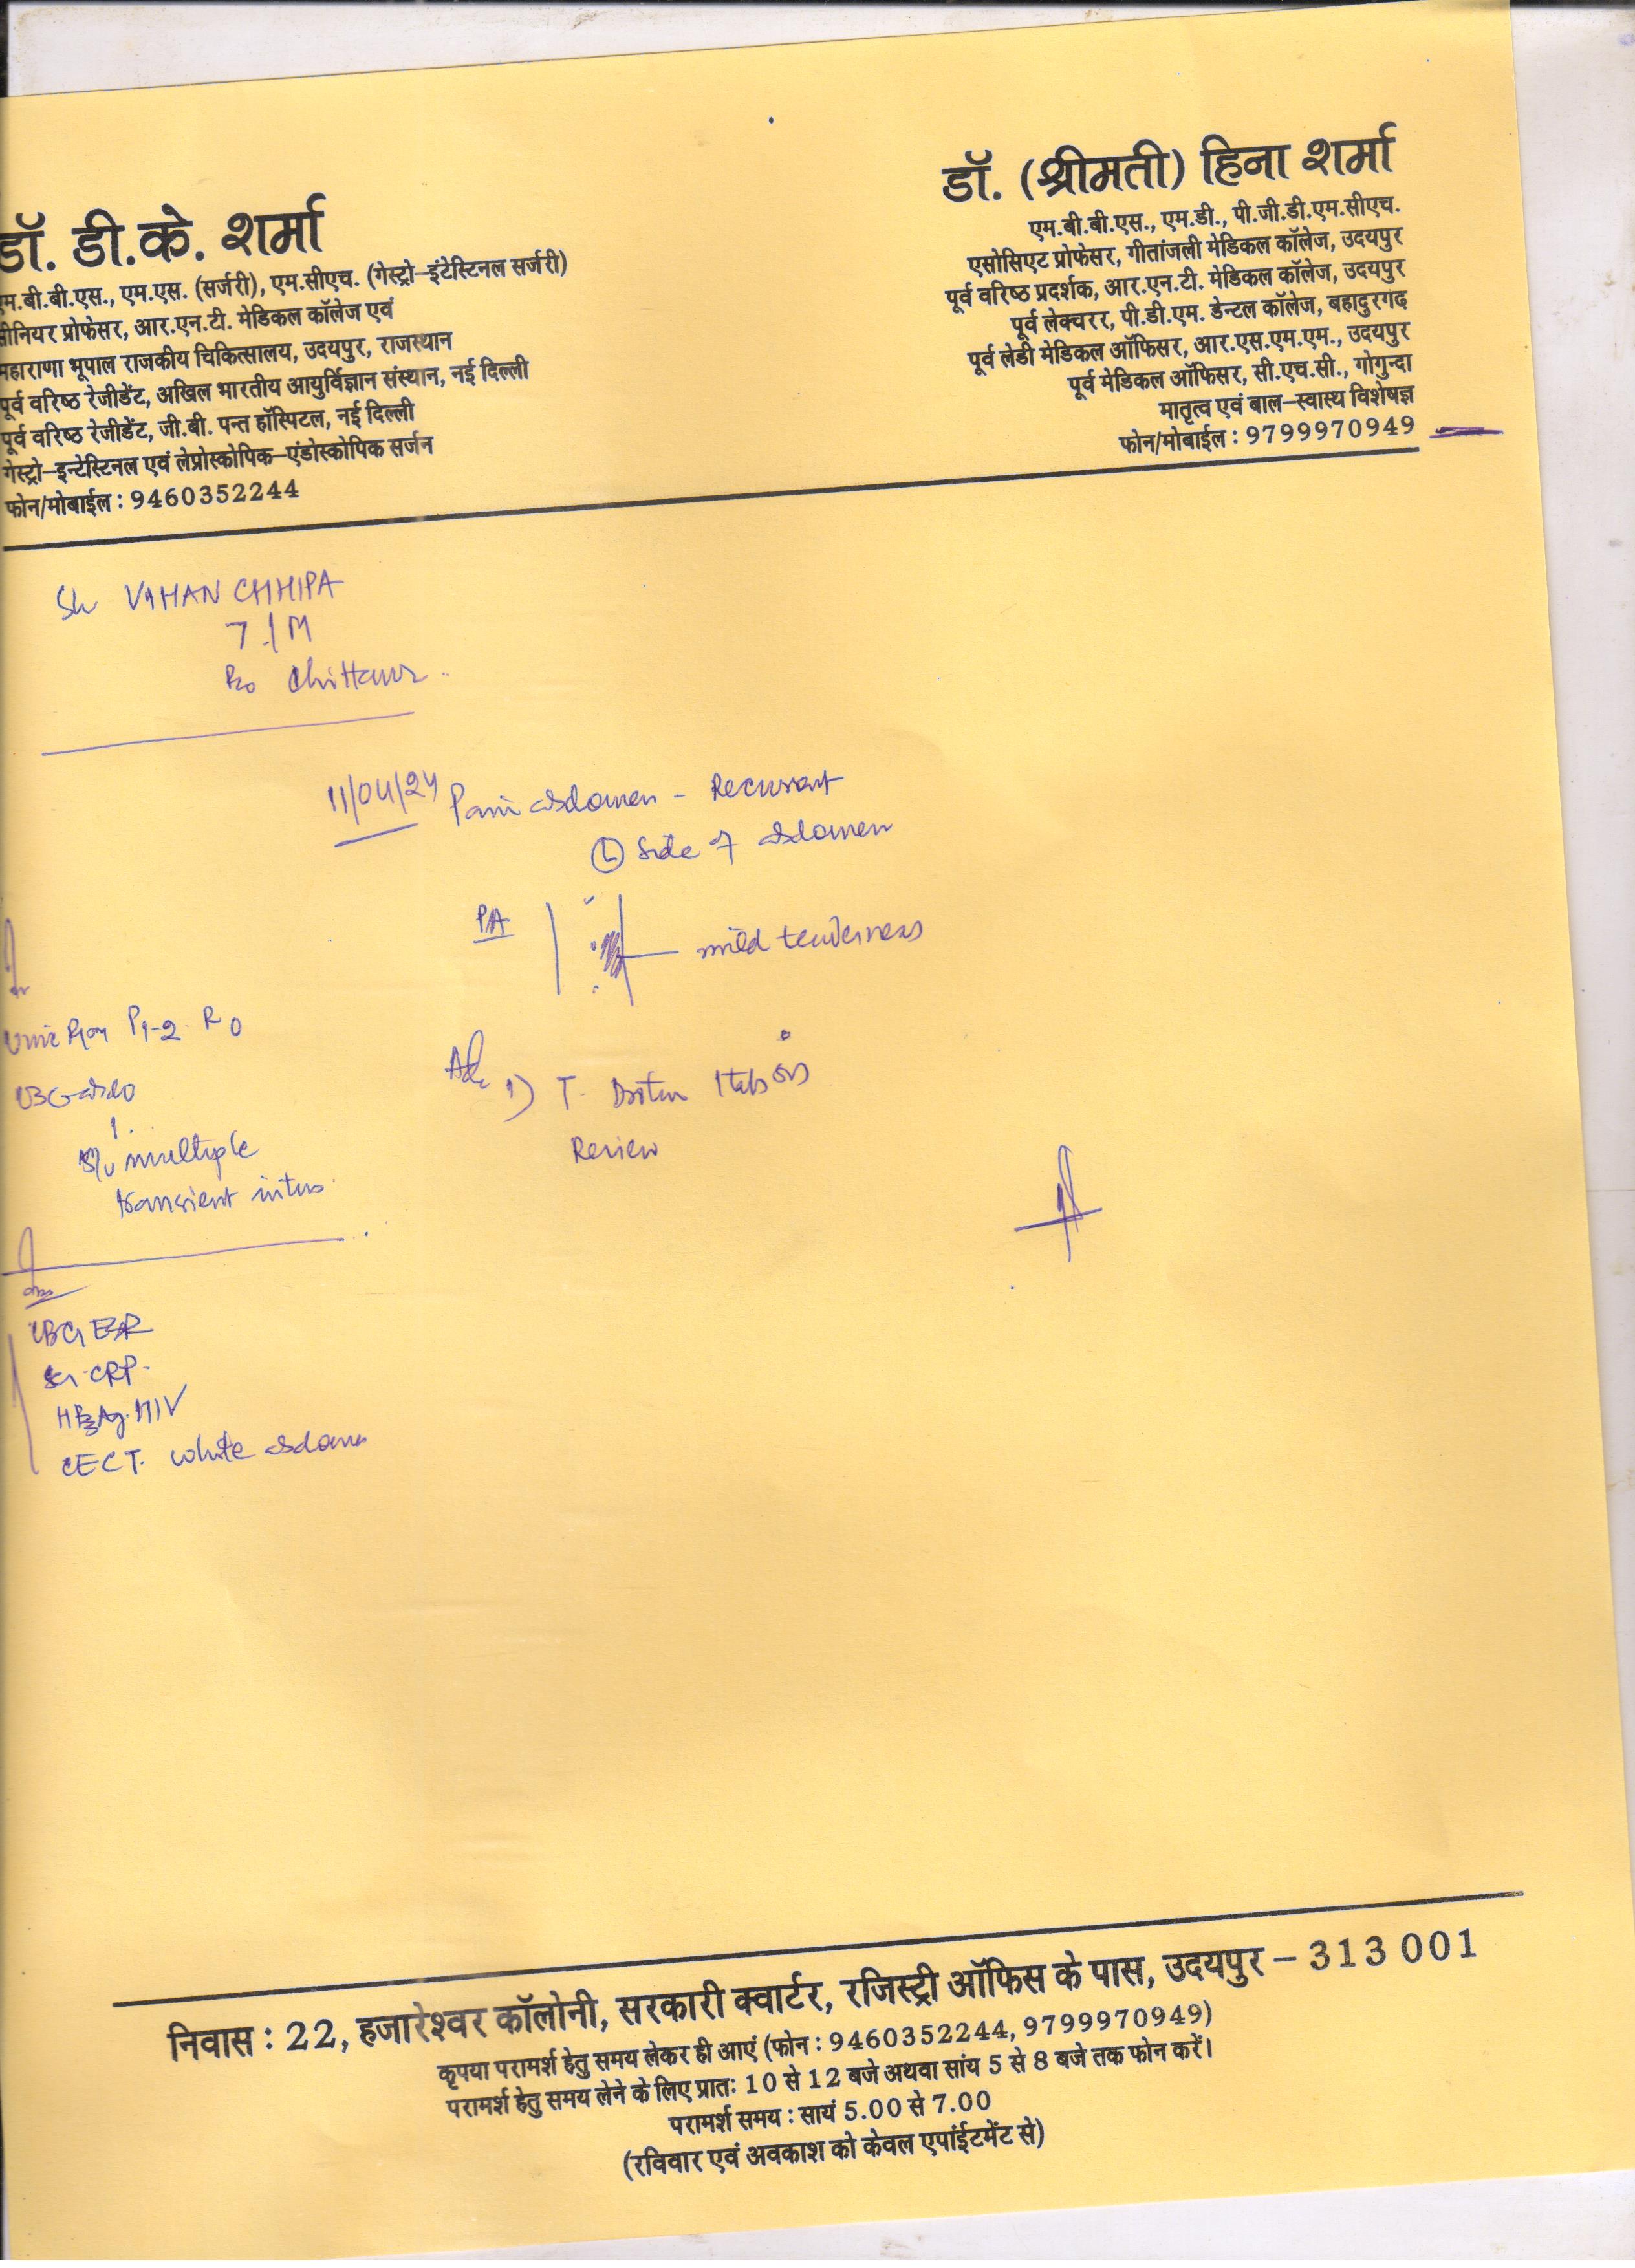 डॉ. डी.के. शर्मा
एम.बी.बी.एस., एम.एस. (सर्जरी), एम.सीएच. (गेस्ट्रो–इंटेस्टिनल सर्जरी)
सीनियर प्रोफेसर, आर.एन.टी. मेडिकल कॉलेज एवं
महाराणा भूपाल राजकीय चिकित्सालय, उदयपुर, राजस्थान
पूर्व वरिष्ठ रेजीडेंट, अखिल भारतीय आयुर्विज्ञान संस्थान, नई दिल्ली
पूर्व वरिष्ठ रेजीडेंट, जी.बी. पन्त हॉस्पिटल, नई दिल्ली
गेस्ट्रो–इन्टेस्टिनल एवं लेप्रोस्कोपिक–एंडोस्कोपिक सर्जन
फोन/मोबाईल : 9460352244
डॉ. (श्रीमती) हिना शर्मा
एम.बी.बी.एस., एम.डी., पी.जी.डी.एम.सीएच.
एसोसिएट प्रोफेसर, गीतांजली मेडिकल कॉलेज, उदयपुर
पूर्व वरिष्ठ प्रदर्शक, आर.एन.टी. मेडिकल कॉलेज, उदयपुर
पूर्व लेक्चरर, पी.डी.एम. डेन्टल कॉलेज, बहादुरगढ
पूर्व लेडी मेडिकल ऑफिसर, आर.एस.एम.एम., उदयपुर
पूर्व मेडिकल ऑफिसर, सी.एच.सी., गोगुन्दा
मातृत्व एवं बाल–स्वास्थ विशेषज्ञ
फोन/मोबाईल : 9799970949
VIHAN CHHIPA
7/M
R/o Chittaur
11/04/24 Pain abdomen - Recurrent
(L) side of abdomen
PA mild tenderness
Adv 1) T. 1 tab
Review
P1-2 R0
multiple
transient intus.
CBC ESR
Sr. CRP
HBsAg. HIV
CECT. whole abdomen
निवास : 22, हजारेश्वर कॉलोनी, सरकारी क्वार्टर, रजिस्ट्री ऑफिस के पास, उदयपुर – 313 001
कृपया परामर्श हेतु समय लेकर ही आएं (फोन : 9460352244, 9799970949)
परामर्श हेतु समय लेने के लिए प्रातः 10 से 12 बजे अथवा सांय 5 से 8 बजे तक फोन करें।
परामर्श समय : सायं 5.00 से 7.00
(रविवार एवं अवकाश को केवल एपांईटमेंट से)